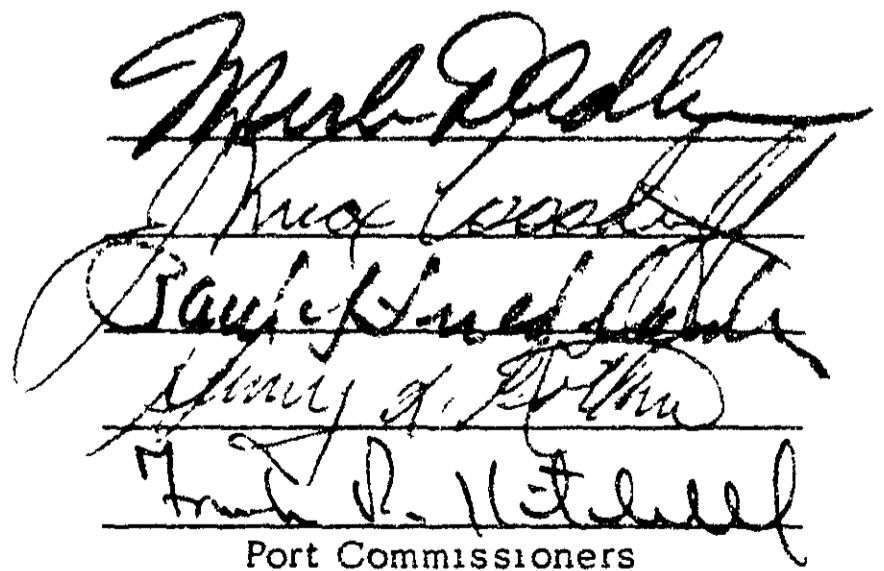 Merle D Adlum
J Knox Woodruff
Paul S. Friedlander
Henry L. Kotkins
Frank R. Kitchell
Port Commissioners